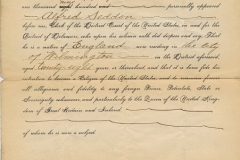 one thousand eight hundred and personally appeared
Alfred Seddon
before me, Clerk of the District Court of the United States, in and for the
District of Delaware, who upon his solemn oath did depose and say That
he is a native of England now residing in the City
of Wilmington in the District aforesaid
aged twenty eight years or thereabout and that it is his bona fide
intention to become a Citizen of the United States, and to renounce forever
all allegiance and fidelity to any foreign Prince, Potentate, State or
Sovereignty whatever, and particularly to the Queen of the United King-
dom of Great Britain and Ireland
of whom he is now a subject